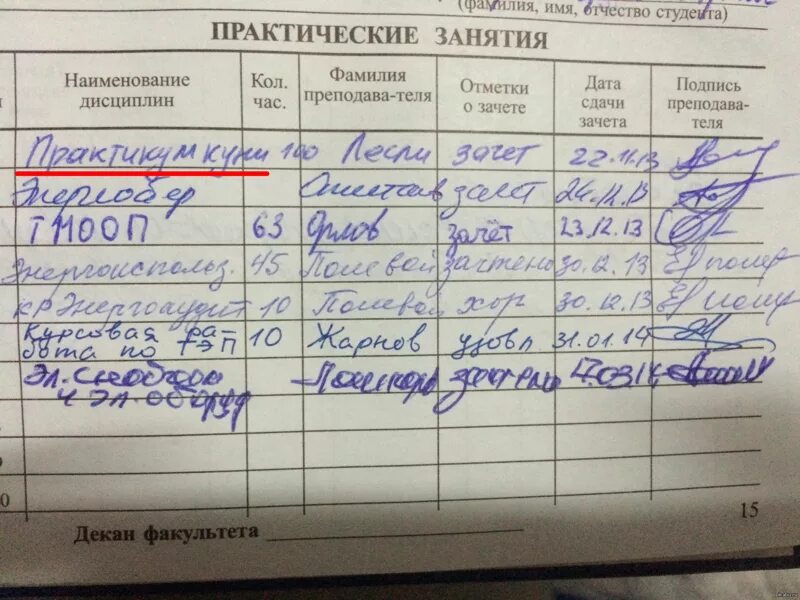 (фамилия, имя, отчество студента)
ПРАКТИЧЕСКИЕ ЗАНЯТИЯ
Наименование дисциплин Кол. час. Фамилия преподава-теля Отметки о зачете Дата сдачи зачета Подпись преподава-теля
Практикум куни 100 Лесли зачет 22.11.13
Энергосбер зачет 24.12.13
ТМООП 63 Орлов зачёт 23.12.13
Энергоиспольз. 45 Полевой зачтено 30.12.13
КР Энергоаудит 10 Полевой хор 30.12.13
Курсовая ра-
бота по ТЭП 10 Жарнов удовл 31.01.14
Эл. снабжен зачтено 17.03.14
и эл. оборуд
0
15
Декан факультета